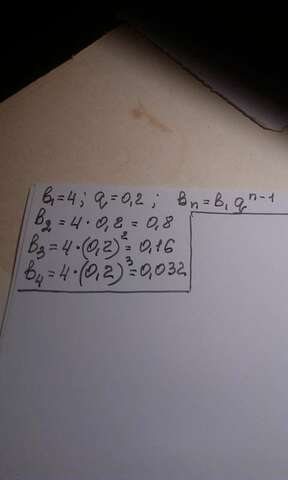 b₁=4; q=0,2; bₙ=b₁qⁿ⁻¹
b₂=4·0,2=0,8
b₃=4·(0,2)²=0,16
b₄=4·(0,2)³=0,032